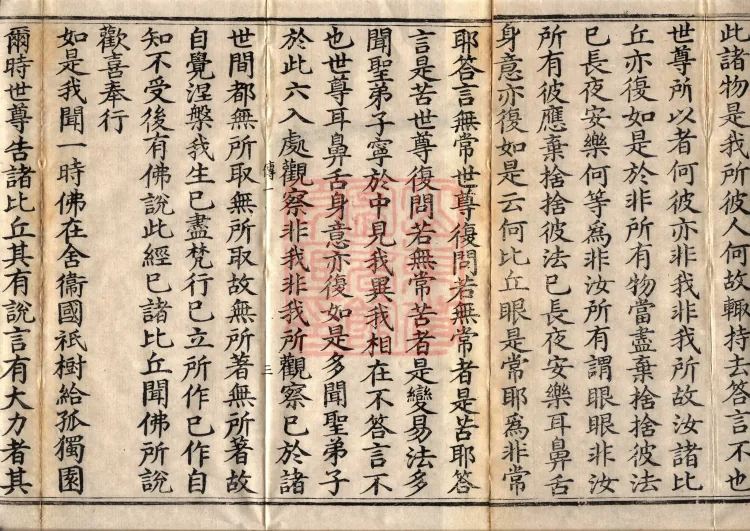 此諸物是我所彼人何故輙持去荅言不也
世尊所以者何彼亦非我非我所故汝諸比
丘亦復如是於非所有物當盡棄捨捨彼法
已長夜安樂何等為非汝所有謂眼眼非汝
所有彼應棄捨捨彼法已長夜安樂耳鼻舌
身意亦復如是云何比丘眼是常耶為非常
耶荅言無常世尊復問若無常者是苦耶荅
言是苦世尊復問若無常苦者是變易法多
聞聖弟子寧於中見我異我相在不荅言不
也世尊耳鼻舌身意亦復如是多聞聖弟子
於此六入處觀察非我非我所觀察已於諸
傳一
三
世間都無所取無所取故無所著無所著故
自覺涅槃我生已盡梵行已立所作已作自
知不受後有佛說此經已諸比丘聞佛所說
歡喜奉行
如是我聞一時佛在舍衞國祇樹給孤獨園
爾時世尊告諸比丘其有說言有大力者其